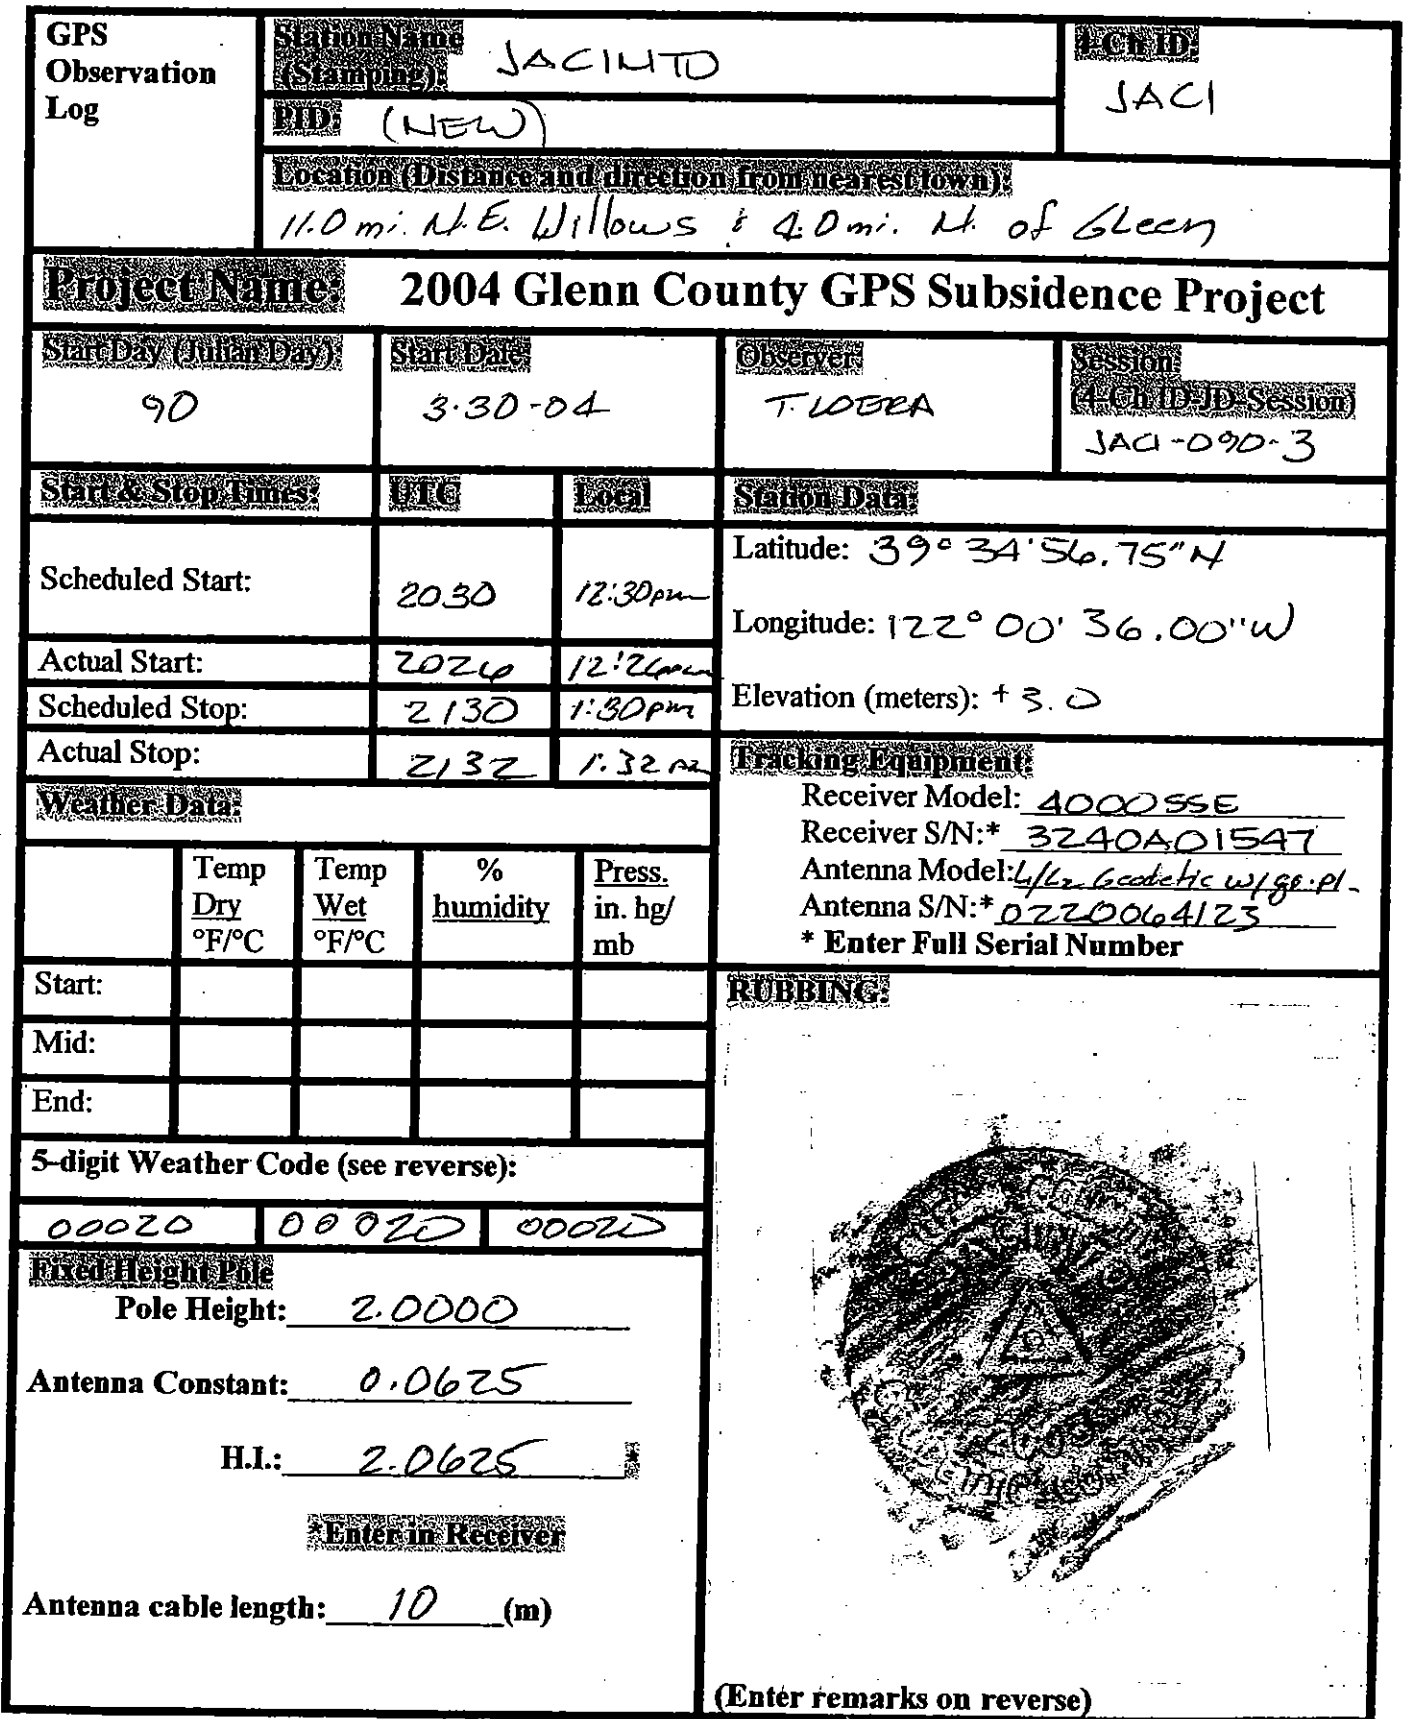 GPS Observation Log
Station Name (Stamping): JACINTO
4-Ch ID: JACI
PID: (NEW)
Location (Distance and direction from nearest town):
11.0 mi. N.E. Willows & 4.0 mi. N. of Gleen
Project Name: 2004 Glenn County GPS Subsidence Project
Start Day (Julian Day): 90
Start Date: 3-30-04
Observer: T. LOERA
Session: (4-Ch ID-JD-Session) JACI-090-3
Start & Stop Times: UTC Local
Scheduled Start: 2030 12:30pm
Actual Start: 2026 12:26pm
Scheduled Stop: 2130 1:30pm
Actual Stop: 2132 1:32 pm
Station Data:
Latitude: 39° 34' 56.75" N
Longitude: 122° 00' 36.00" W
Elevation (meters): +3.0
Tracking Equipment:
Receiver Model: 4000SSE
Receiver S/N:* 3240A01547
Antenna Model: L1/L2 Geodetic w/ gr. pl.
Antenna S/N:* 0220064123
* Enter Full Serial Number
Weather Data:
Temp Dry °F/°C
Temp Wet °F/°C
% humidity
Press. in. hg/ mb
Start:
Mid:
End:
5-digit Weather Code (see reverse):
00020 00020 00020
Fixed Height Pole
Pole Height: 2.0000
Antenna Constant: 0.0625
H.I.: 2.0625 *
*Enter in Receiver
Antenna cable length: 10 (m)
RUBBING:
(Enter remarks on reverse)